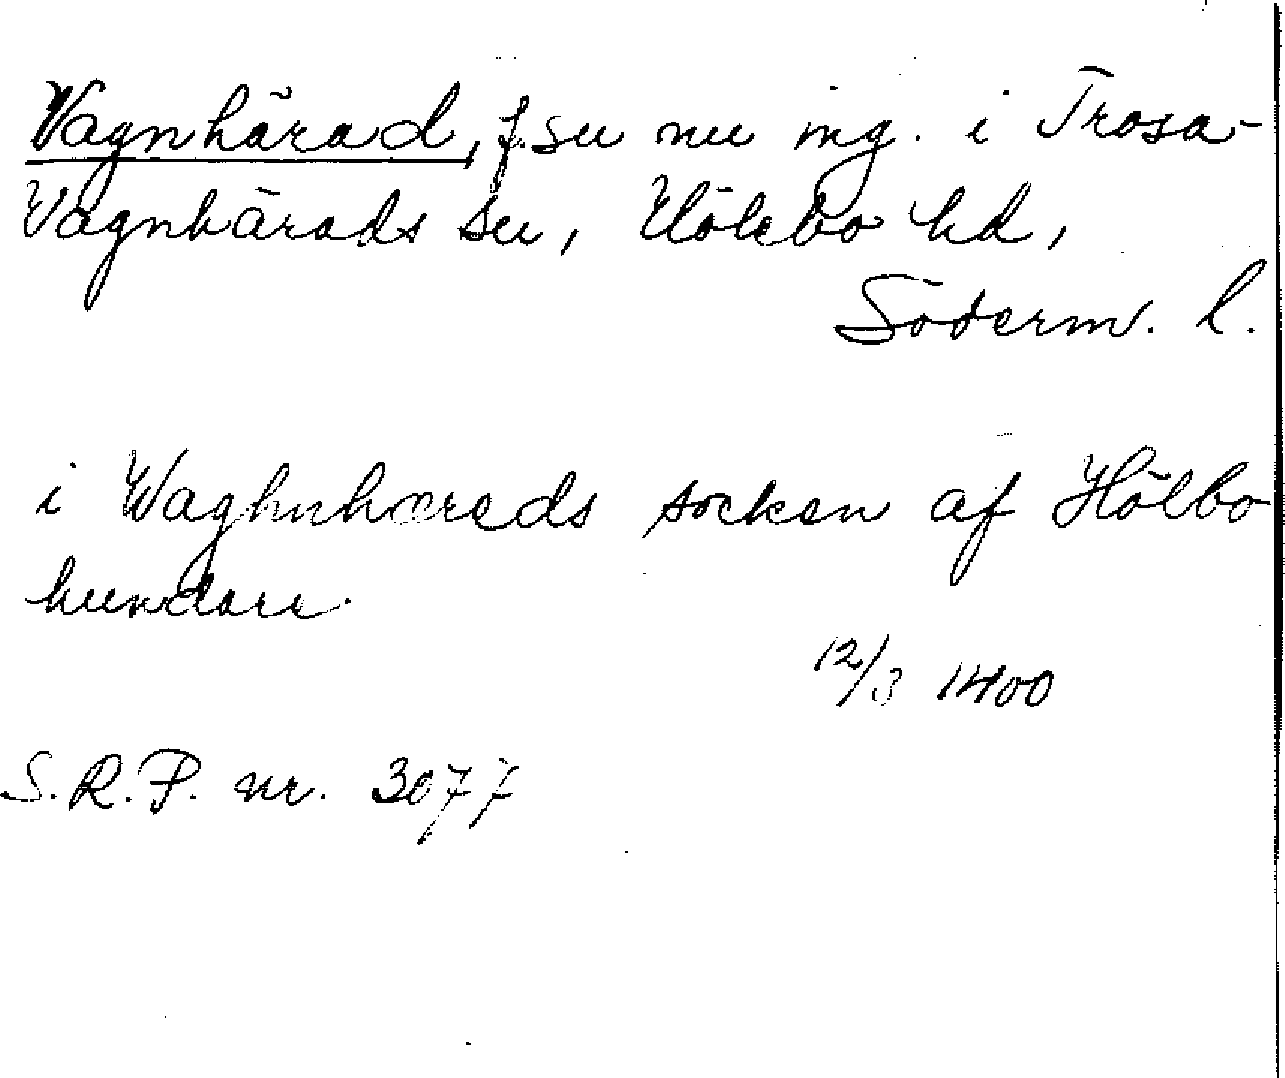 Vagnhärad, f. sn nu ing. i Trosa-
Vagnhärads sn, Hölebo hd,
Söderm. l.
i Waghnhæreds socken af Hölbo
hundare.
12/3 1400
S.R.P. nr. 3077